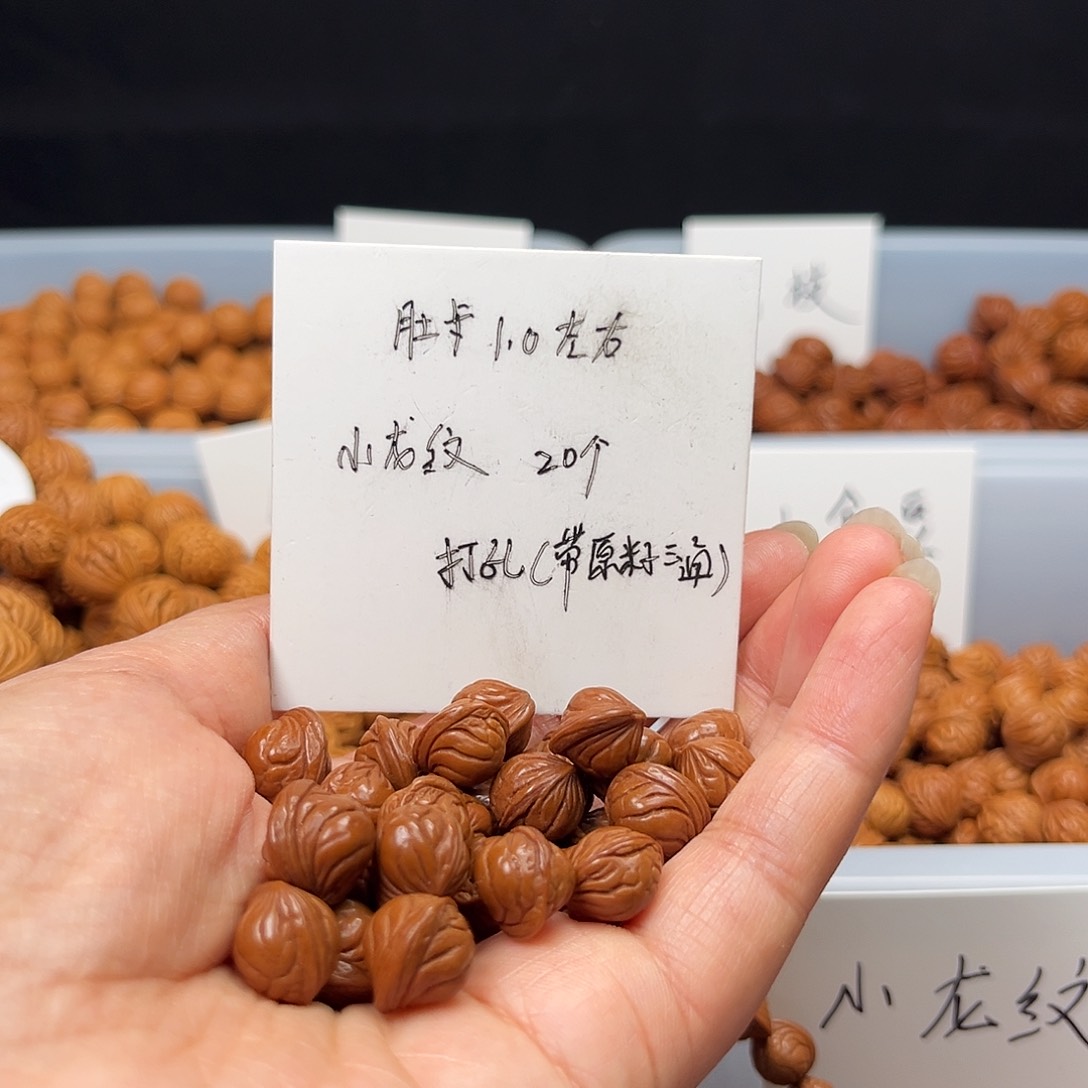 肚卡 1.0左右
小龙纹 20个
打孔(带原籽三通)
小龙纹